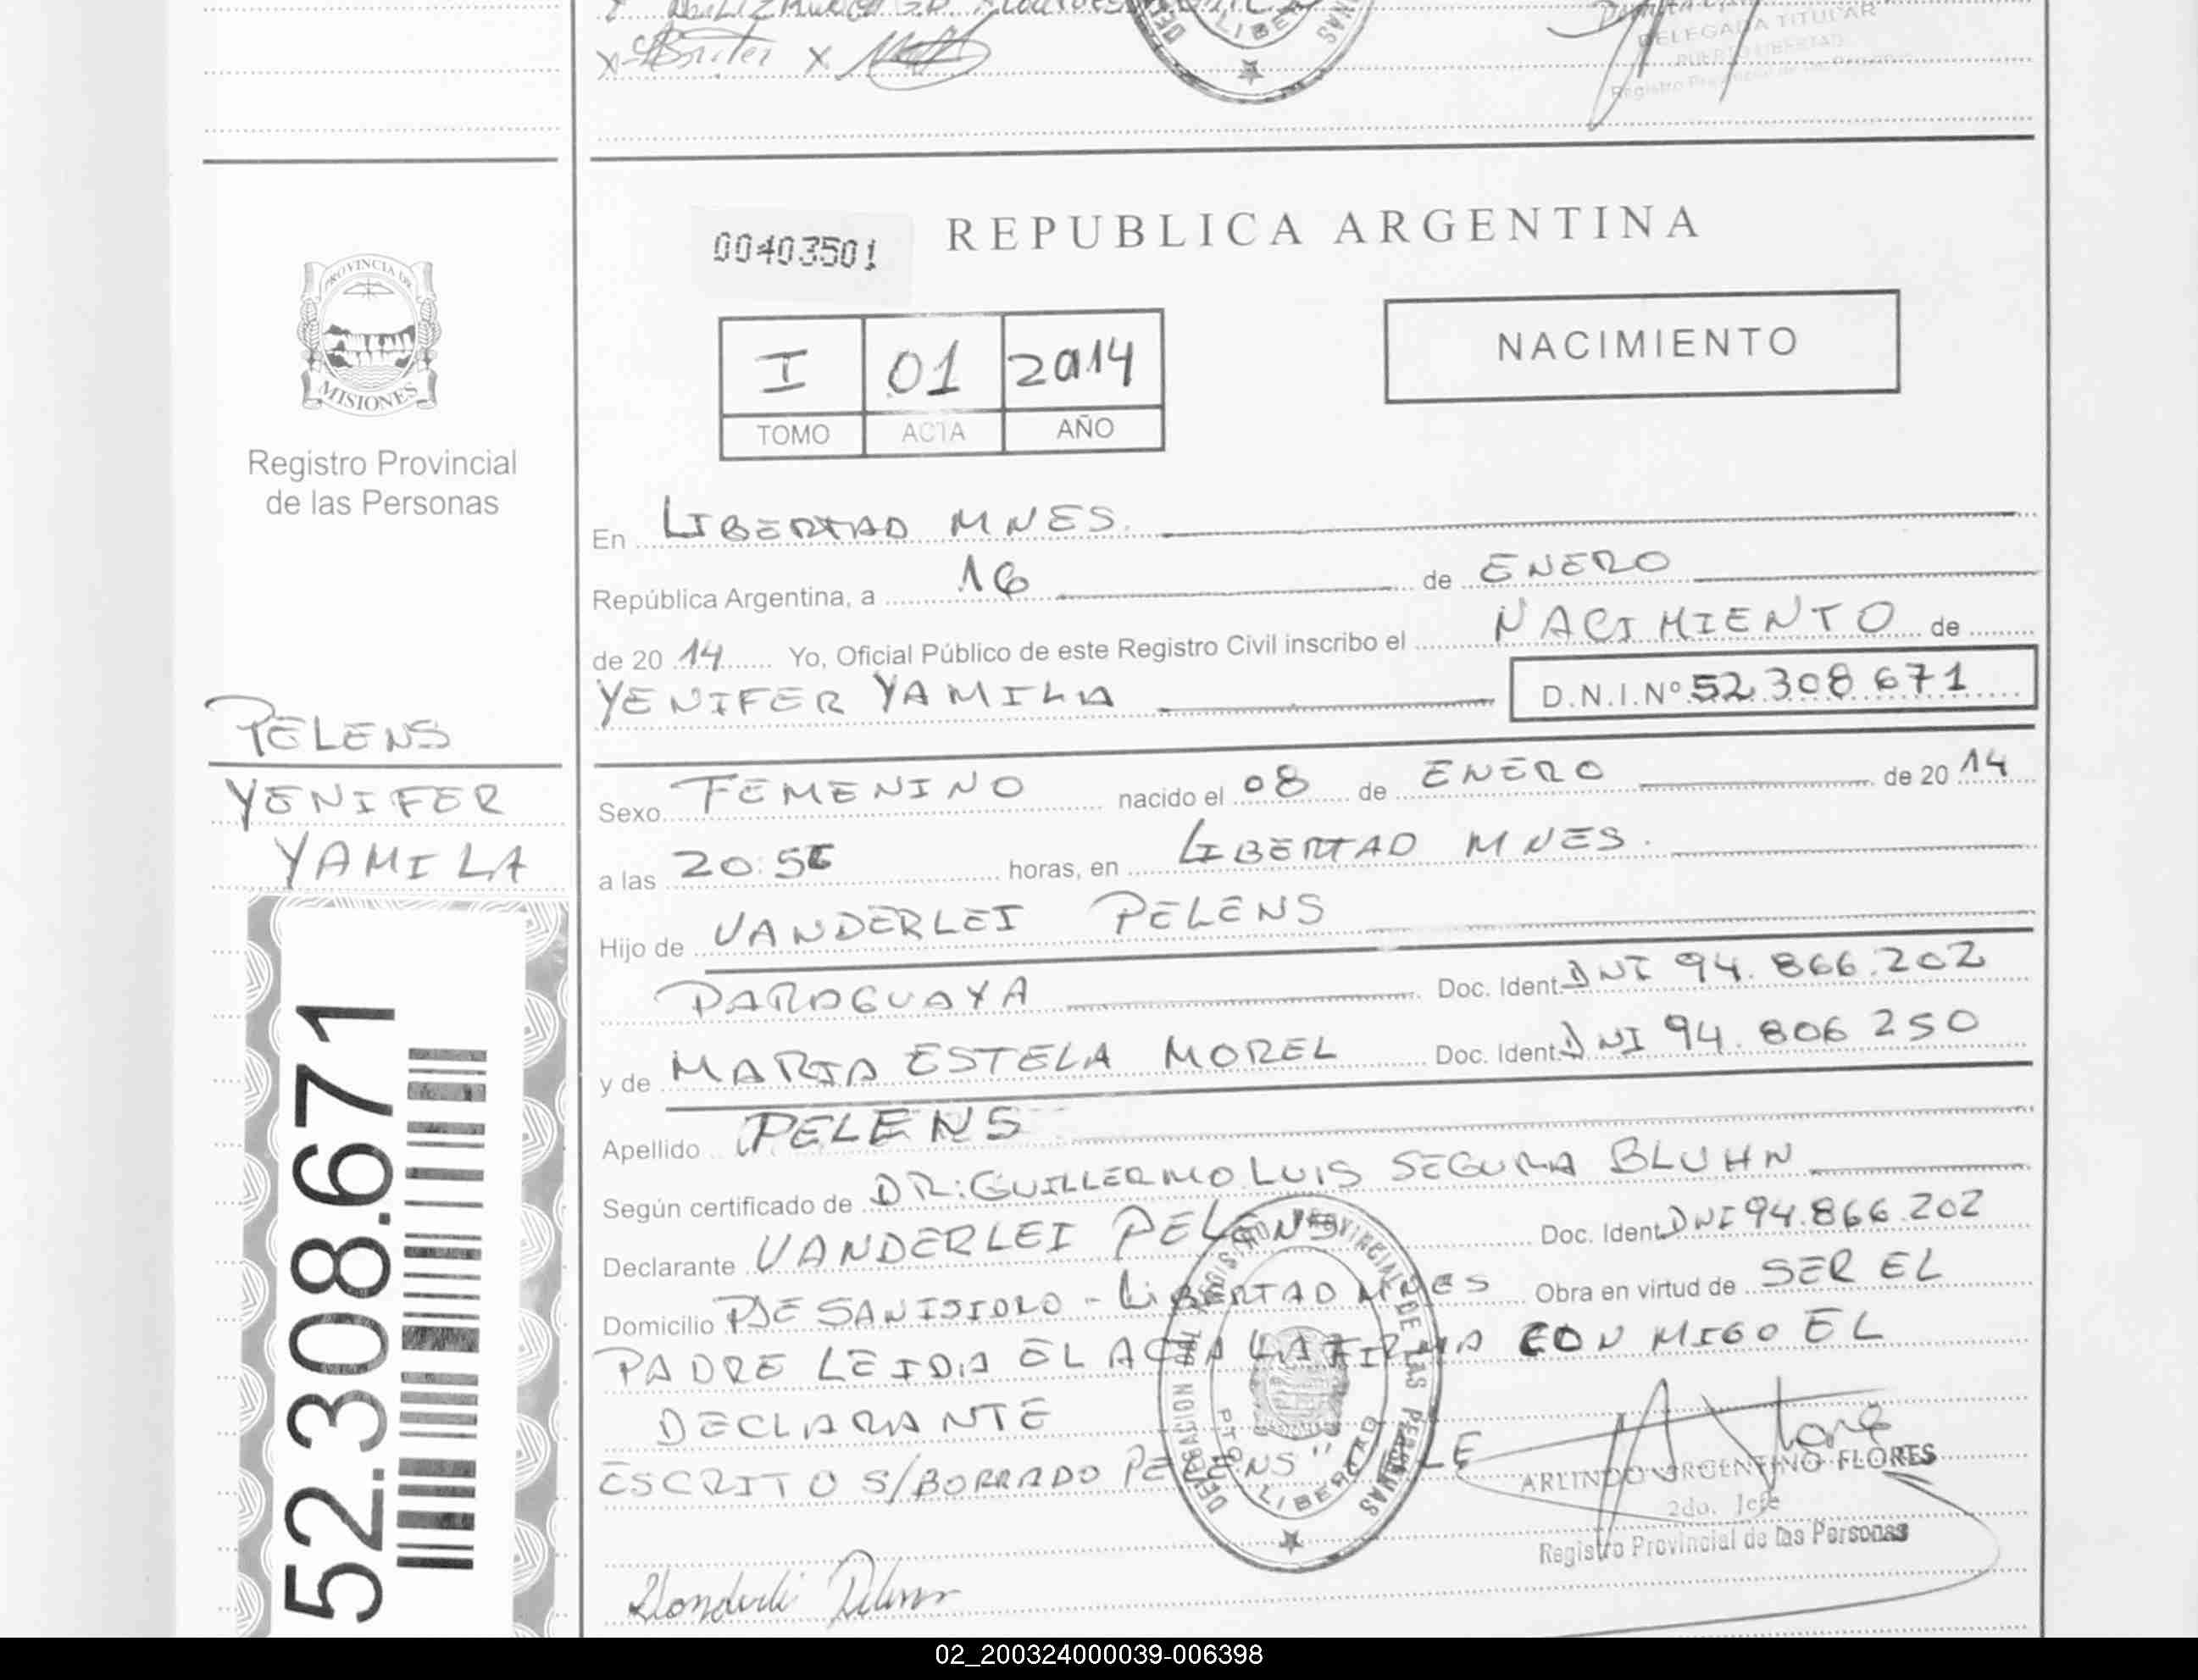 DELEGADA TITULAR
PUERTO LIBERTAD
Registro Provincial de las Personas
PROVINCIA DE
MISIONES
Registro Provincial
de las Personas
PELENS
YENIFER
YAMILA
52.308.671
00403501
REPUBLICA ARGENTINA
I 01 2014
TOMO ACTA AÑO
NACIMIENTO
En LIBERTAD MNES.
República Argentina, a 16 de ENERO
de 20 14 Yo, Oficial Público de este Registro Civil inscribo el NACIMIENTO de
YENIFER YAMILA D.N.I.Nº 52.308.671
Sexo FEMENINO nacido el 08 de ENERO de 20 14
a las 20:56 horas, en LIBERTAD MNES.
Hijo de VANDERLEI PELENS
PARAGUAYA Doc. Ident. DNI 94.866.202
y de MARIA ESTELA MOREL Doc. Ident. DNI 94.806 250
Apellido PELENS
Según certificado de DR: GUILLERMO LUIS SEGURA BLUHN
Declarante VANDERLEI PELENS Doc. Ident. DNI 94.866.202
Domicilio PJE SAN ISIDRO - LIBERTAD MNES Obra en virtud de SER EL
PADRE LEIDA EL ACTA LA FIRMA CON MIGO EL
DECLARANTE
ESCRITO S/BORRADO PELENS" VALE
DELEGACION REGISTRO PROVINCIAL DE LAS PERSONAS
PTO. LIBERTAD
ARLINDO ARGENTINO FLORES
2do. Jefe
Registro Provincial de las Personas
02_200324000039-006398